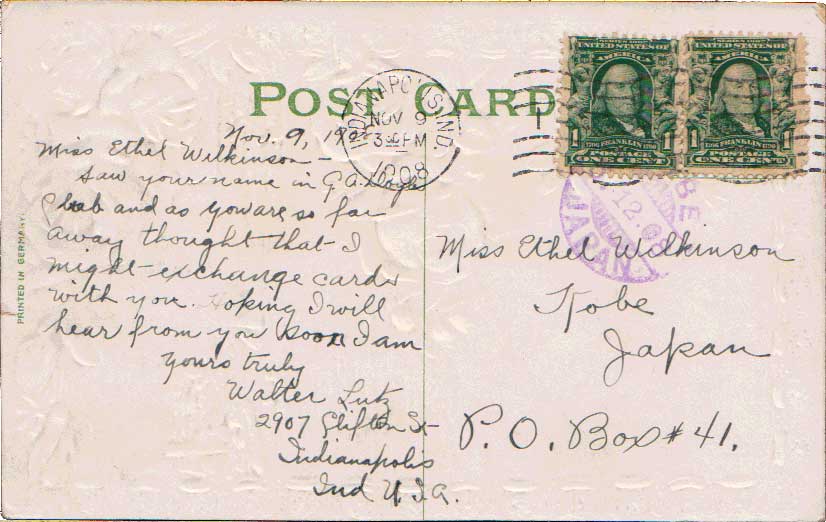 POST CARD
INDIANAPOLIS, IND.
NOV 9
3 30 PM
1908
SERIES 1902
UNITED STATES OF
AMERICA
1 1706 FRANKLIN 1790
POSTAGE
ONE CENT
SERIES 1902
UNITED STATES OF
AMERICA
1 1706 FRANKLIN 1790
POSTAGE
ONE CENT
BE
12.08
JAPAN
PRINTED IN GERMANY
Nov. 9, 190
Miss Ethel Wilkinson –
Saw your name in
and as you are so far
away thought that I
might exchange cards
with you. Hoping I will
hear from you soon I am
Yours truly
Walter Lutz
2907 Clifton St
Indianapolis
Ind U.S.A.
Miss Ethel Wilkinson
Kobe
Japan
P. O. Box # 41.